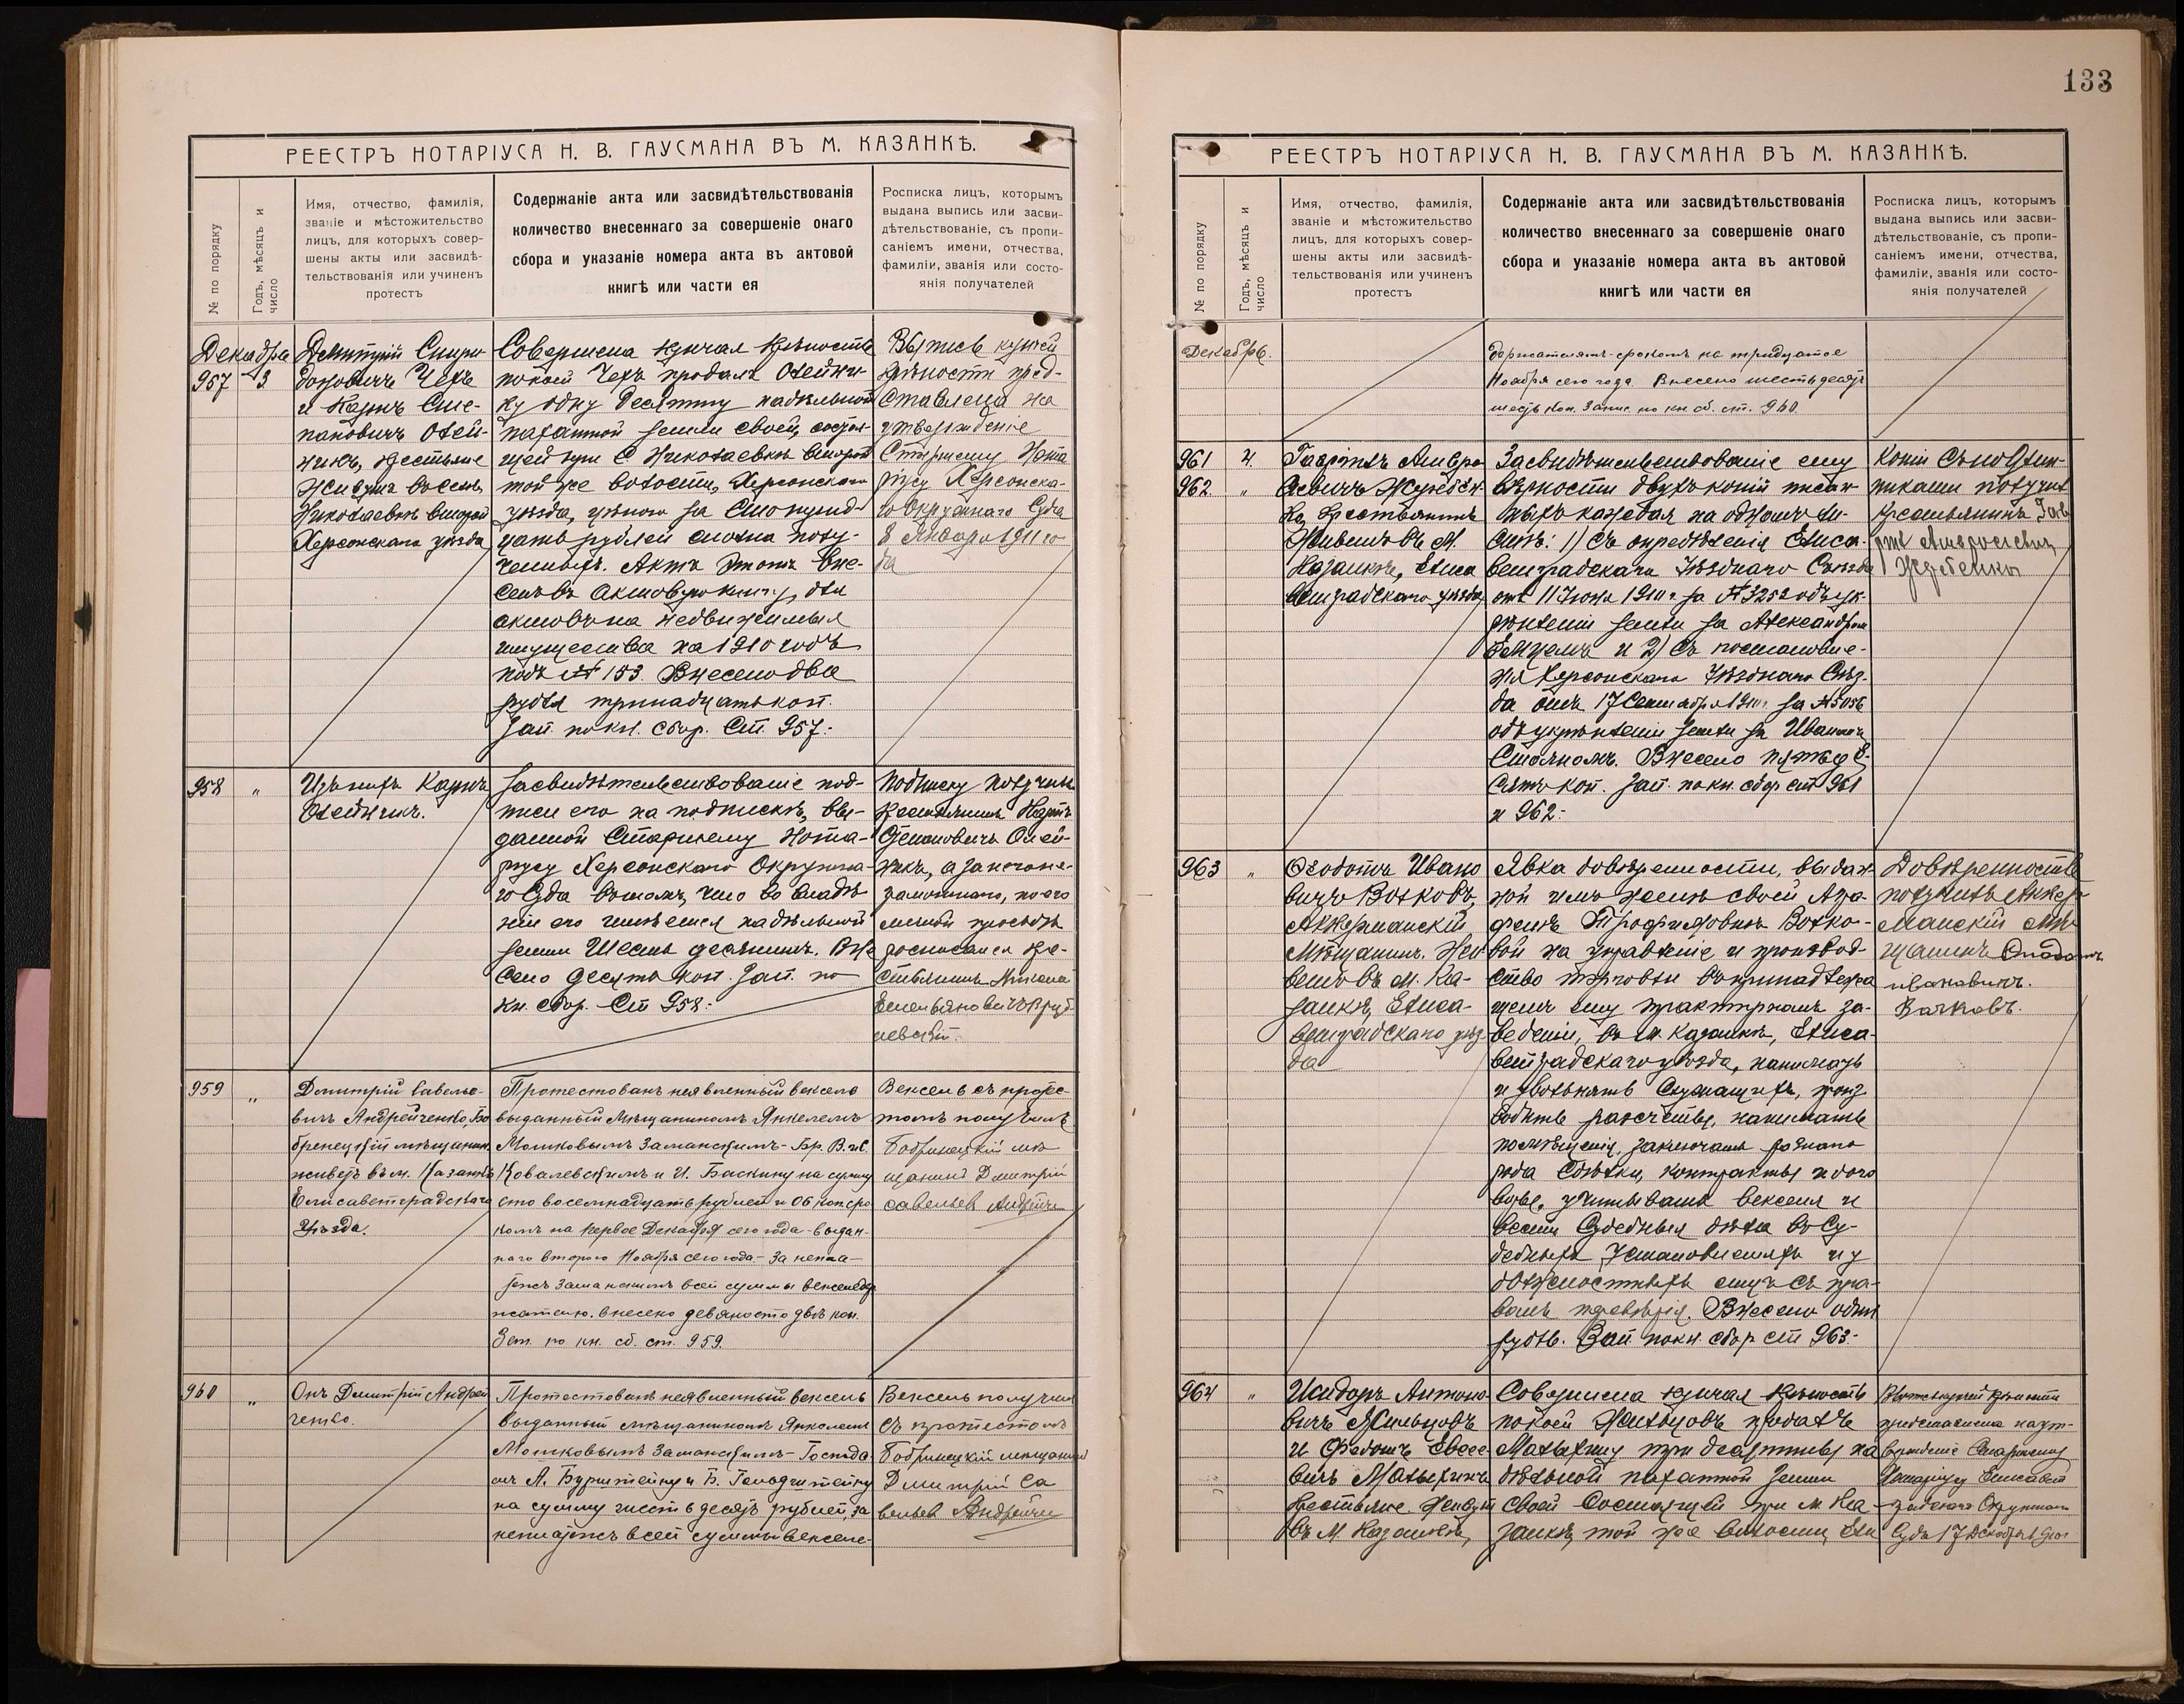 РЕЕСТРЪ НОТАРІУСА Н. В. ГАУСМАНА ВЪ М. КАЗАНКѢ.
№ по порядку
Годъ, мѣсяцъ и
число
Имя, отчество, фамилія,
званіе и мѣстожительство
лицъ, для которыхъ совер-
шены акты или засвидѣ-
тельствованія или учиненъ
протестъ
Содержаніе акта или засвидѣтельствованія
количество внесеннаго за совершеніе онаго
сбора и указаніе номера акта въ актовой
книгѣ или части ея
Росписка лицъ, которымъ
выдана выпись или засви-
дѣтельствованіе, съ пропи-
саніемъ имени, отчества,
фамиліи, званія или состо-
янія получателей
Декабря
957 3
Дмитрій Спири-
доновичъ Чехъ
и Карпъ Сте-
пановичъ Олей-
никъ, крестьяне
живущіе въ селѣ
Николаевкѣ второй
Херсонскаго уѣзда
Совершена купчая крѣпость
по коей Чехъ продалъ Олейни-
ку одну десятину надѣльной
пахатной земли своей, состоя-
щей при С Николаевкѣ второй
той же волости, Херсонскаго
уѣзда, цѣною за Стопятнад-
цать рублей сполна полу-
ченныхъ. Актъ этотъ вне-
сенъ въ актовую книгу, для
актовъ на недвижимыя
имущества на 1910 годъ
подъ № 153. Внесено два
рубля тринадцать коп.
Зап. по кн. сбор. Ст. 957.-
Выпись купчей
крѣпости пред-
ставлена на
утвержденіе
Старшему Нота
ріусу Херсонска-
го Окружнаго Суда
8 Января 1911 го
да
958 "
Изъ нихъ Карпъ
Олейникъ.
Засвидѣтельствованіе под-
писи его на подпискѣ, вы-
данной Старшему Нота-
ріусу Херсонскаго Окружна-
го Суда въ томъ, что во владѣ-
ніи его имѣется надѣльной
земли Шесть десятинъ. Вне
сено десять коп. Зап. по
кн. сбор. Ст 958:
Подписку получилъ
Крестьянинъ Карпъ
Степановичъ Олей-
никъ, а за него не-
грамотнаго, по его
личной просьбѣ
росписался кре-
стьянинъ Николай
Емельяновичъ
959 "
Дмитрій Савелье-
вичъ Андрейченко, Бо
бринецкій мѣщанинъ
живетъ въ м. Казанкѣ
Елисаветградскаго
Уѣзда.
Протестованъ неявленный вексель
выданный Мѣщаниномъ Янкелемъ
Мошковымъ Заманскимъ - Бр. В. и С.
Ковалевскимъ и И. Баскину на сумму
сто восемнадцать рублей и 06 коп сро
комъ на первое Декабря сего года - выдан-
наго второго Ноября сего года - За непла-
тежъ Заманскимъ всей суммы векселедер
жателю. внесено девяносто двѣ коп.
Зап. по кн. сб. ст. 959.
Вексель съ протес-
томъ получилъ
Бобринецкій мѣ
щанинъ Дмитрій
Савельев Андрейче
960 "
Онъ Дмитрій Андрей
ченко.
Протестованъ неявленный вексель
выданный мѣщаниномъ Янкелемъ
Мошковымъ Заманскимъ - Господа
мъ А. Бурштейну и Б. Гольдштейну
на сумму шестьдесятъ рублей, за
неплатежъ всей суммы вексле-
Вексель получилъ
съ протестомъ
Бобринецкій мѣщанинъ
Дмитрій Са
вельев Андрейче
133
РЕЕСТРЪ НОТАРІУСА Н. В. ГАУСМАНА ВЪ М. КАЗАНКѢ.
№ по порядку
Годъ, мѣсяцъ и
число
Имя, отчество, фамилія,
званіе и мѣстожительство
лицъ, для которыхъ совер-
шены акты или засвидѣ-
тельствованія или учиненъ
протестъ
Содержаніе акта или засвидѣтельствованія
количество внесеннаго за совершеніе онаго
сбора и указаніе номера акта въ актовой
книгѣ или части ея
Росписка лицъ, которымъ
выдана выпись или засви-
дѣтельствованіе, съ пропи-
саніемъ имени, отчества,
фамиліи, званія или состо-
янія получателей
Декабрь.
держателямъ срокомъ на тридцатое
Ноября сего года. Внесено шестьдесятъ
шесть коп. Запис. по кн. сб. ст. 960.
961 4.
962 "
Гавріилъ Амвро
сіевичъ Жеребен-
ко, Крестьянинъ
Живетъ въ М.
Казанкѣ, Елиса
ветградскаго уѣзда
Засвидѣтельствованіе ему
вѣрности двухъ копій писан-
ныхъ каждая на одномъ ли-
стѣ: 1) Съ опредѣленія Елиса-
ветградскаго Уѣзднаго Съѣзда
отъ 11 Іюня 1910 г за № 3252 объ ук-
рѣпленіи земли за Александромъ
и 2) Съ постановле-
нія Херсонскаго Уѣзднаго Съѣз-
да отъ 17 Сентября 1910 г. за № 5056
объ укрѣпленіи земли за Иваномъ
Стояномъ. Внесено пятьде-
сятъ коп. Зап. по кн. сбор ст 961
и 962:
Копіи съ подлин-
никами получилъ
крестьянинъ Гав
ріилъ Амвросіевичъ
Жеребенко
963 "
Ѳеодотъ Ивано
вичъ Волковъ,
Аккерманскій
Мѣщанинъ. Жи
ветъ въ М. Ка-
занкѣ, Елиса-
ветградскаго уѣз
да
Явка довѣренности, выдан-
ной имъ женѣ своей Ага-
феѣ Трофимовнѣ Волко-
вой на управленіе и производ-
ство торговли въ принадлежа
щемъ ему трактирномъ за-
веденіи, въ м. Казанкѣ, Елиса-
ветградскаго уѣзда, нанимать
и увольнять служащихъ, произ
водить разсчеты, нанимать
помѣщенія, заключать разнаго
рода сдѣлки, контракты и дого
воры, учитывать векселя и
вести Судебныя дѣла въ Су-
дебныхъ Установленіяхъ и у
должностныхъ лицъ съ пра-
вомъ передовѣрія. Внесено одинъ
рубль. Зап. по кн. сбор ст 963.-
Довѣренность
получилъ Аккер-
манскій мѣ
щанинъ Ѳеодотъ
Ивановичъ.
Валковъ.
964 "
Исидоръ Антоно-
вичъ Жильцовъ
и Федотъ Евсее-
вичъ Малыхинъ
Крестьяне Живут
въ М Казанкѣ,
Совершена купчая крѣпость
по коей Жильцовъ продалъ
Малыхину три десятины на
дѣльной пахатной земли
своей состоящей при м Ка
занкѣ, той же волости, Ели
Выпись купчей крѣпости
представлена на ут-
вержденіе Старшему
Нотаріусу Елисавет
градскаго Окружнаго
Суда 17 Декабря 1910 г